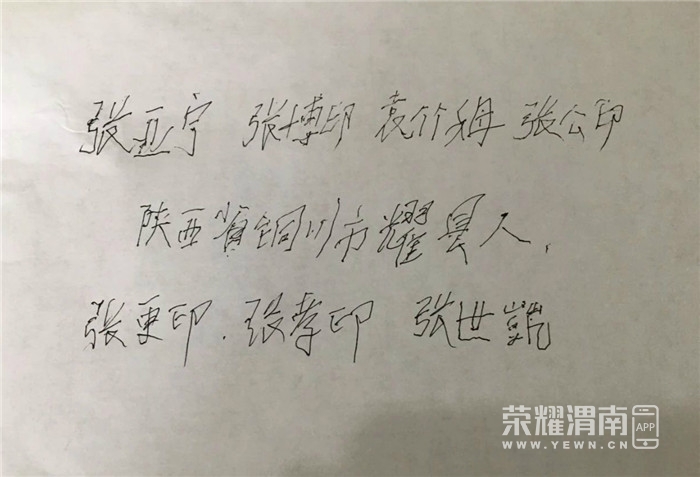 张亚宁 张博印 袁竹梅 张公印
陕西省铜川市耀县人,
张更印.张孝印 张世
荣耀渭南 APP
WWW.YEWN.CN